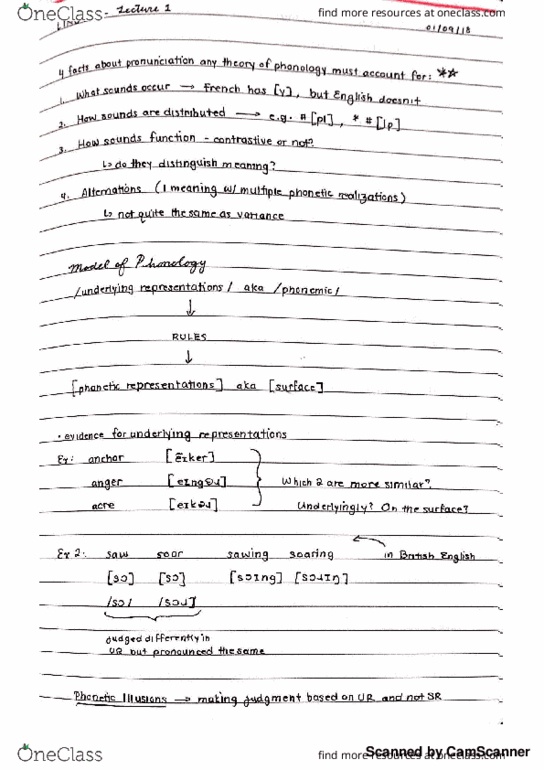 OneClass
Lecture 1
find more resources at oneclass.com
01/09/18
4 facts about pronunciation any theory of phonology must account for: **
1. What sounds occur → French has [y], but English doesn't
2. How sounds are distributed → e.g. #[pl], *#[lp]
3. How sounds function - contrastive or not?
↳ do they distinguish meaning?
4. Alternations (1 meaning w/ multiple phonetic realizations)
↳ not quite the same as variance
Model of Phonology
/underlying representations/ aka /phonemic/
↓
RULES
↓
[phonetic representations] aka [surface]
• evidence for underlying representations
Ex: anchor [ẽɪker]
anger [eɪngəɹ] Which 2 are more similar?
acre [eɪkəɹ] Underlyingly? On the surface?
Ex 2: saw soar sawing soaring ← in British English
[sɔ] [sɔ] [sɔɪng] [sɔɹɪŋ]
/sɔ/ /sɔɹ]
judged differently in
UR but pronounced the same
Phonetic Illusions → making judgment based on UR and not SR
OneClass
find more resources at oneclass.com
Scanned by CamScanner